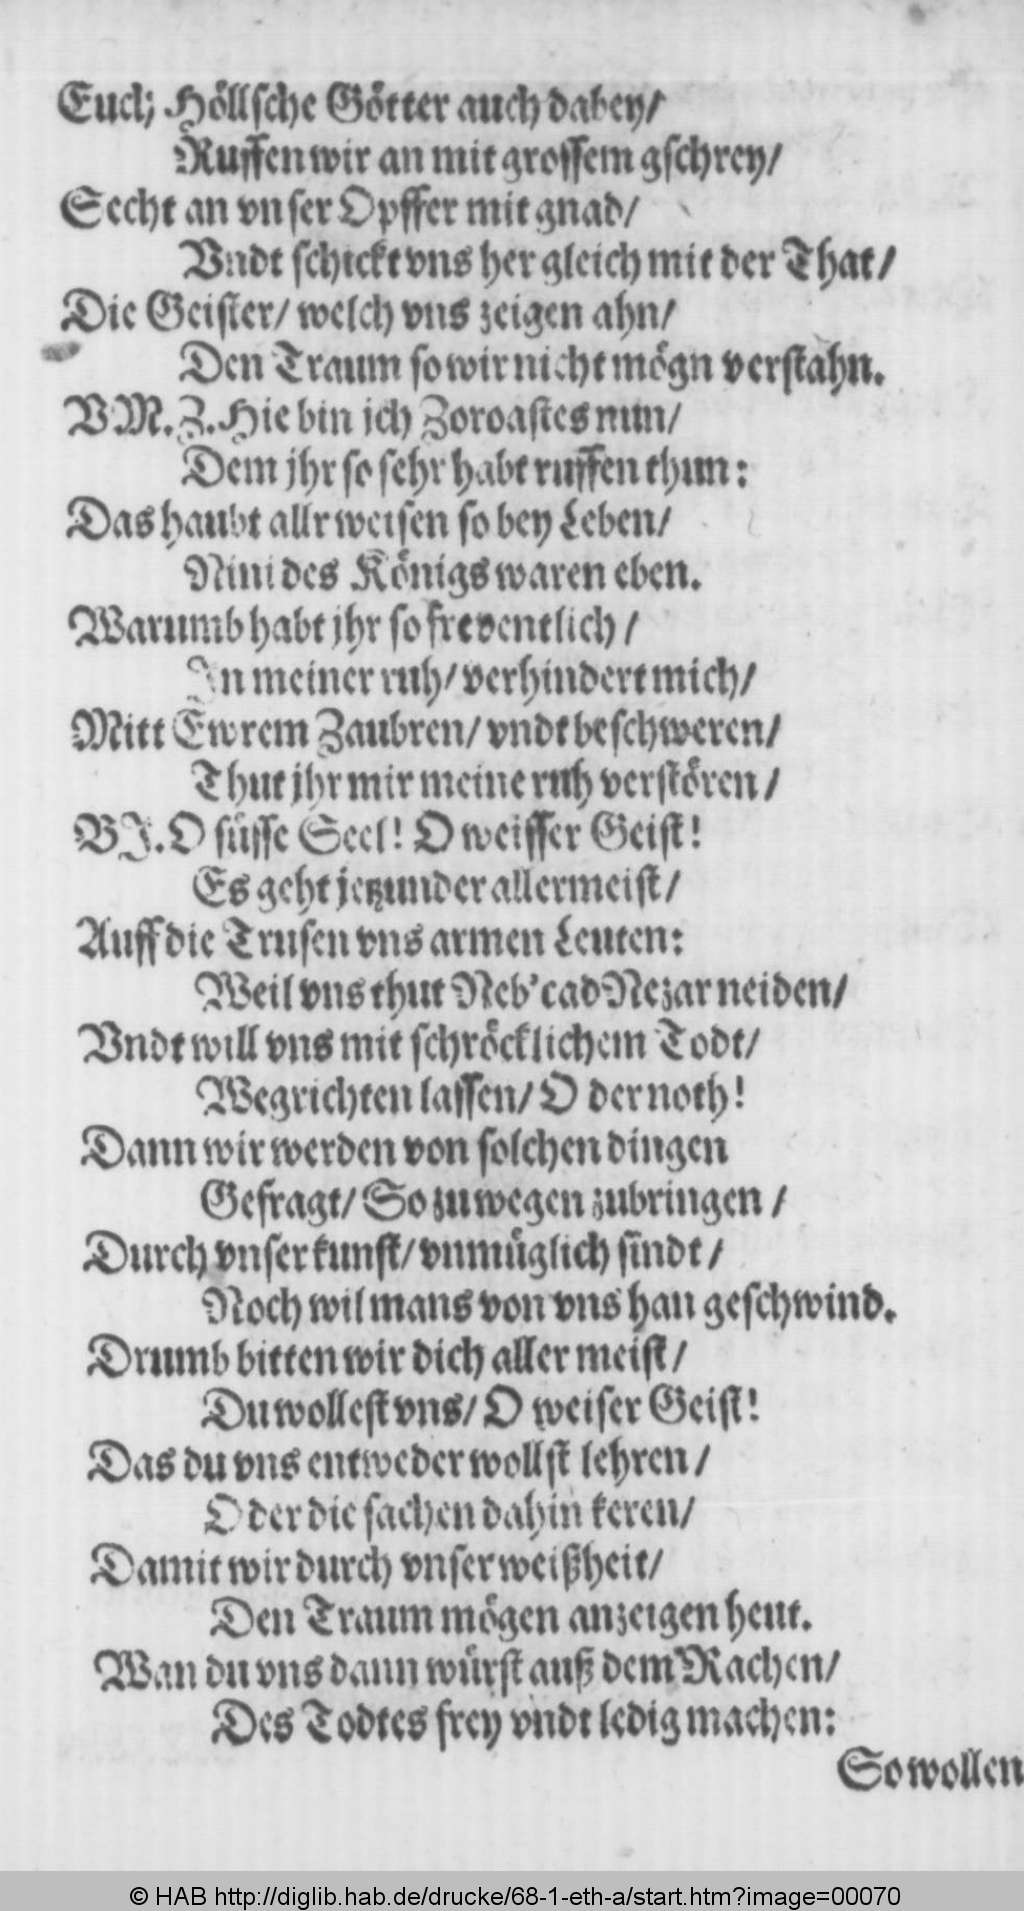 Euch Höllsche Götter auch dabey/
Ruffen wir an mit grossem gschrey/
Secht an vnser Opffer mit gnad/
Vndt schickt vns her gleich mit der That/
Die Geister/ welch vns zeigen ahn/
Den Traum so wir nicht mögn verstahn.
V M. Z. Hie bin jch Zoroastes nun/
Dem jhr so sehr habt ruffen thun:
Das haubt allr weisen so bey Leben/
Nini des Königs waren eben.
Warumb habt jhr so freventlich/
In meiner ruh/ verhindert mich/
Mitt Ewrem Zaubren/ vndt beschweren/
Thut jhr mir meine ruh verstören/
VJ. O süsse Seel! O weisser Geist!
Es geht jetzunder allermeist/
Auff die Trusen vns armen Leuten:
Weil vns thut Neb'cadNezar neiden/
Vndt will vns mit schröcklichem Todt/
Wegrichten lassen/ O der noth!
Dann wir werden von solchen dingen
Gefragt/ So zuwegen zubringen/
Durch vnser kunst/ vnmüglich sindt/
Noch wil mans von vns han geschwind.
Drumb bitten wir dich aller meist/
Du wollest vns/ O weiser Geist!
Das du vns entweder wollst lehren/
Oder die sachen dahin keren/
Damit wir durch vnser weißheit/
Den Traum mögen anzeigen heut.
Wan du vns dann würst auß dem Rachen/
Des Todtes frey vndt ledig machen:
So wollen
© HAB http://diglib.hab.de/drucke/68-1-eth-a/start.htm?image=00070